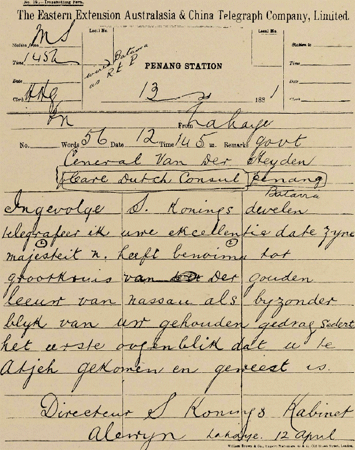 The Eastern Extension Australasia & China Telegraph Company, Limited.
MS
Time, 1452
Clerk
Local No.
send Batavia
as REP
PENANG STATION
13 188 1
Local No.
Station to
Time,
Clerk,
From Lahaye
No. Words 56 Date 12 Time 145 m. Remarks govt
General Van Der Heyden
Care Dutch Consul Penang
Batavia
Ingevolge S. Konings
telegrafeer ik uwe excellentie date zyne
majesteit u. heeft benoimd tot
grootkruis van der gouden
leeuw van nassau als byzonder
blyk van uw gehouden gedrag Sedert
het eerste oogenblik dat u te
Atjeh gekomen en geweest is.
Directeur S Konings Kabinet
Alewyn Lahaye. 12 April